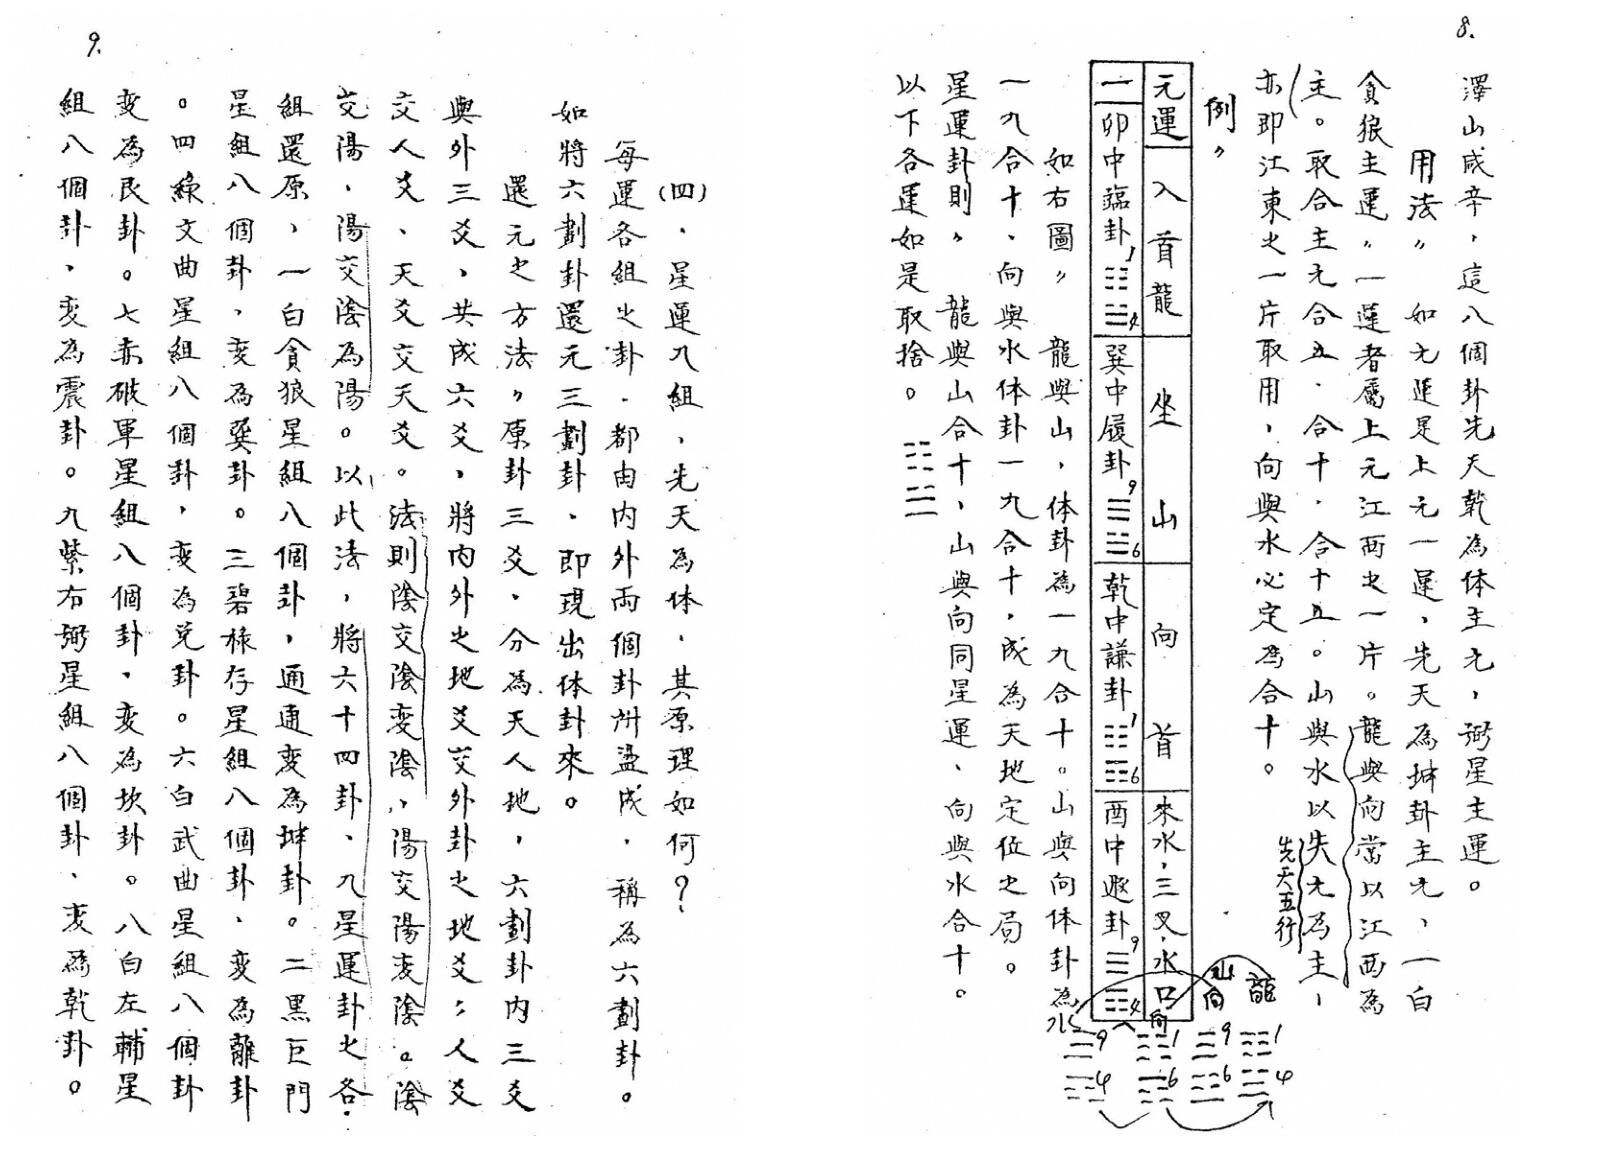 8.
澤山咸辛，這八個卦先天乾為体主元，弼星主運。
用法〃 如元運是上元一運，先天為坤卦主元，一白
貪狼主運〃一運者屬上元江西之一片。龍與向當以江西為
主。取合主元合五．合十．合十五。山與水以失元為主，
先天五行
亦即江東之一片取用，向與水必定為合十。
例〃
元運 入首龍 坐山 向首 來水，三叉，水口
一 卯中臨卦 1 4 巽中履卦 9 6 乾中謙卦 1 6 酉中遯卦 9 4
如右圖〃 龍與山，体卦為一九合十。山與向体卦為
一九合十、向與水体卦一九合十，成為天地定位之局。
星運卦則〃 龍與山合十，山與向同星運、向與水合十。
以下各運如是取捨。
龍
山
向
向
水
9 1 9 1
4 6 6 4
9.
(四)．星運九組、先天為体．其原理如何？
每運各組之卦．都由内外兩個卦併盪成．稱為六劃卦。
如將六劃卦還元三劃卦．即現出体卦來。
還元之方法〃原卦三爻．分為天人地，六劃卦内三爻
與外三爻，共成六爻，將内外之地爻交外卦之地爻；人爻
交人爻、天爻交天爻。法則陰交陰变陰，陽交陽变陰。陰
交陽．陽交陰為陽。以此法，將六十四卦、九星運卦之各
組還原，一白貪狼星組八個卦，通通变為坤卦。二黑巨門
星組八個卦，变為巽卦。三碧祿存星組八個卦、变為離卦
。四綠文曲星組八個卦，变為兑卦。六白武曲星組八個卦
变為艮卦。七赤破軍星組八個卦、变為坎卦。八白左輔星
組八個卦、变為震卦。九紫右弼星組八個卦、变為乾卦。